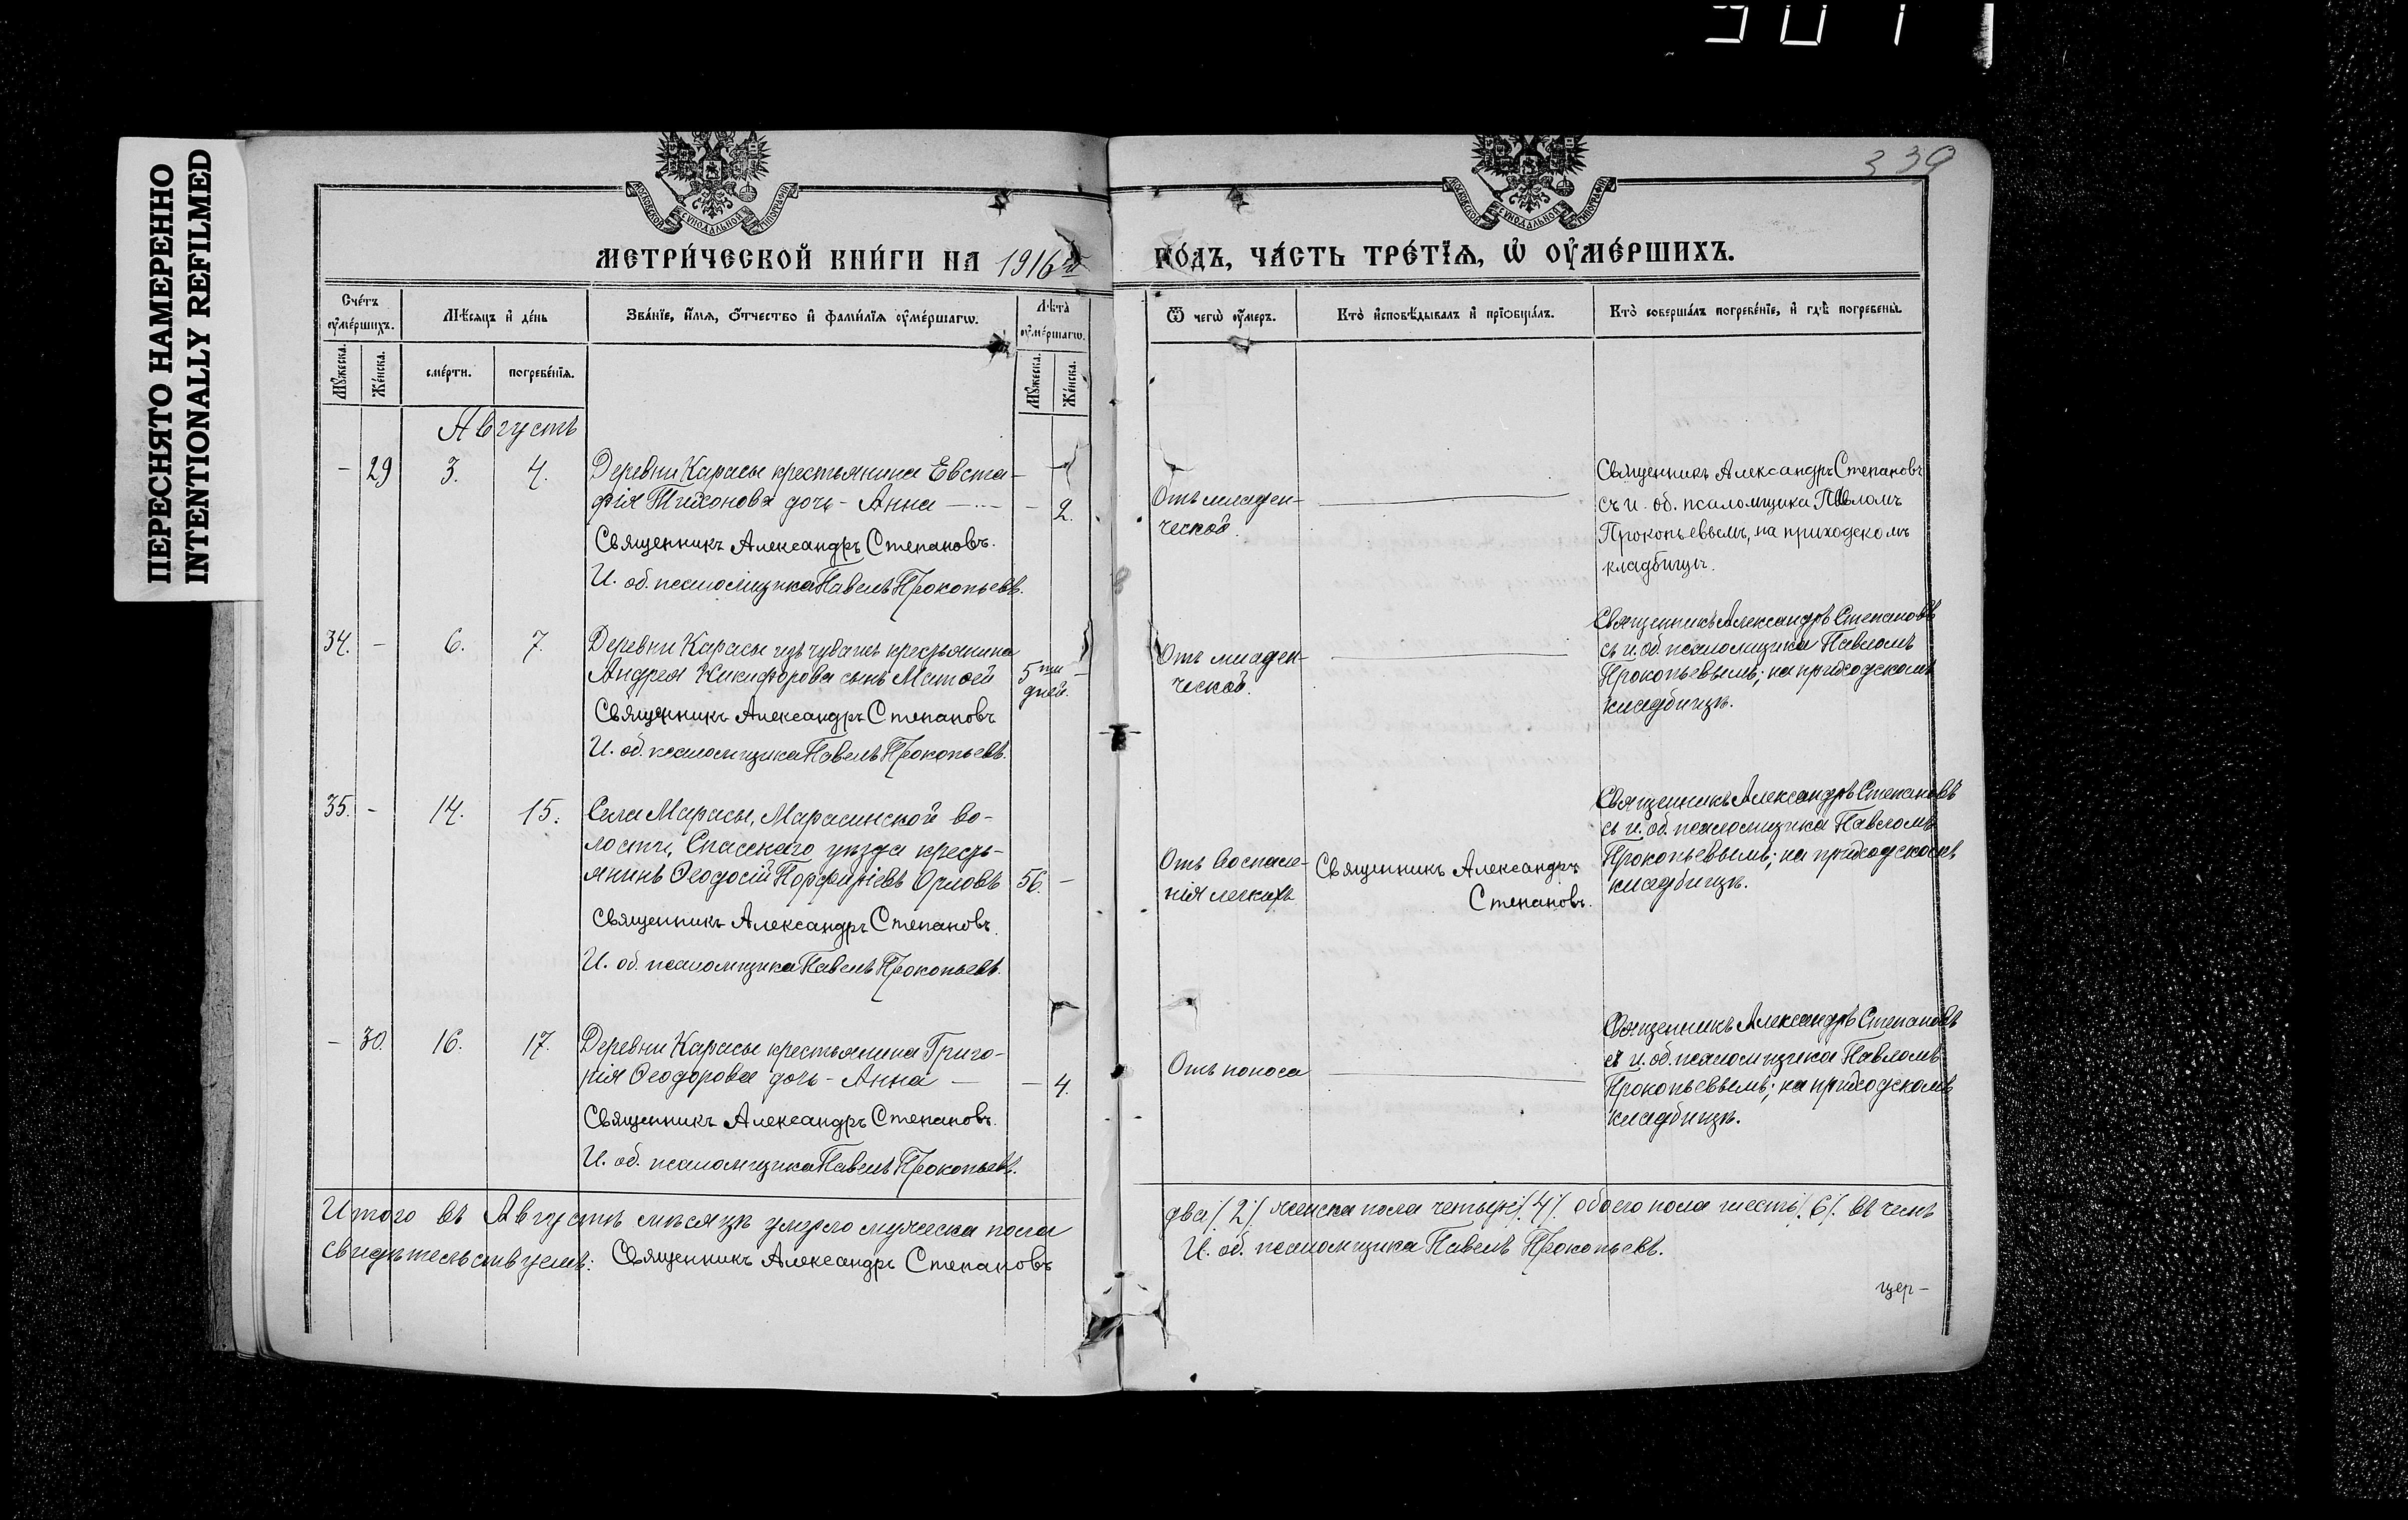 ПЕРЕСНЯТО НАМЕРЕННО
INTENTIONALLY REFILMED
339
МОСКОВСКОЙ СѴНОДАЛЬНОЙ ТИПОГРАФІИ
МОСКОВСКОЙ СѴНОДАЛЬНОЙ ТИПОГРАФІИ
МЕТРИ́ЧЕСКОЙ КНИ́ГИ НА 1916й ГО́ДЪ, ЧА́СТЬ ТРЕ́ТЇѦ, Ѡ҆ ОУ҆МЕ́РШИХЪ.
Сче́тъ оу҆ме́ршихъ.
Мѣ́сѧцъ и҆ де́нь
Зва́нїе, и҆́мѧ, ѻ҆́тчество и҆ фами́лїѧ оу҆ме́ршагѡ.
Лѣ́та оу҆ме́ршагѡ.
Ѿ чегѡ̀ оу҆́меръ.
Кто̀ и҆сповѣ́дывалъ и҆ прїѡбща́лъ.
Кто̀ соверша́лъ погребе́нїе, и҆ гдѣ̀ погребены̀.
Мꙋ́жеска.
Же́нска.
сме́рти.
погребе́нїѧ.
Мꙋ́жеска.
Же́нска.
Августъ
- 29 3. 4. Деревни Карасы крестьянина Евста-
фія Тихонова дочь - Анна - 2.
Священникъ Александръ Степановъ.
И. об. псаломщика Павелъ Прокопьевъ.
Отъ младен-
ческой.
Священникъ Александръ Степановъ
съ и. об. псаломщика Павломъ
Прокопьевымъ, на приходскомъ
кладбищѣ.
34. - 6. 7. Деревни Карасы изъ чувашъ крестьянина
Андрея Никифорова сынъ Матѳей 5ти дней. -
Священникъ Александръ Степановъ
И. об. псаломщика Павелъ Прокопьевъ.
Отъ младен-
ческой.
Священникъ Александръ Степановъ
съ и. об. псаломщика Павломъ
Прокопьевымъ; на приходскомъ
кладбищѣ.
35. - 14. 15. Села Марасы, Марасинской во-
лости, Спасскаго уѣзда кресть-
янинъ Ѳеодосій Порфиріевъ Орловъ 56. -
Священникъ Александръ Степановъ.
И. об. псаломщика Павелъ Прокопьевъ.
Отъ воспале-
нія легкихъ
Священникъ Александръ
Степановъ.
Священникъ Александръ Степановъ
съ и. об. псаломщика Павломъ
Прокопьевымъ; на приходскомъ
кладбищѣ.
- 30. 16. 17. Деревни Карасы крестьянина Григо-
рія Ѳеодорова дочь - Анна - - 4.
Священникъ Александръ Степановъ.
И. об. псаломщика Павелъ Прокопьевъ.
Отъ поноса
Священникъ Александръ Степановъ
съ и. об. псаломщика Павломъ
Прокопьевымъ; на приходскомъ
кладбищѣ.
Итого въ Августѣ мѣсяцѣ умерло мужеска пола два /2/. женска пола четыре /4/. обоего пола шесть /6/. въ чемъ
свидѣтельствуемъ: Священникъ Александръ Степановъ И. об. псаломщика Павелъ Прокопьевъ.
цер-